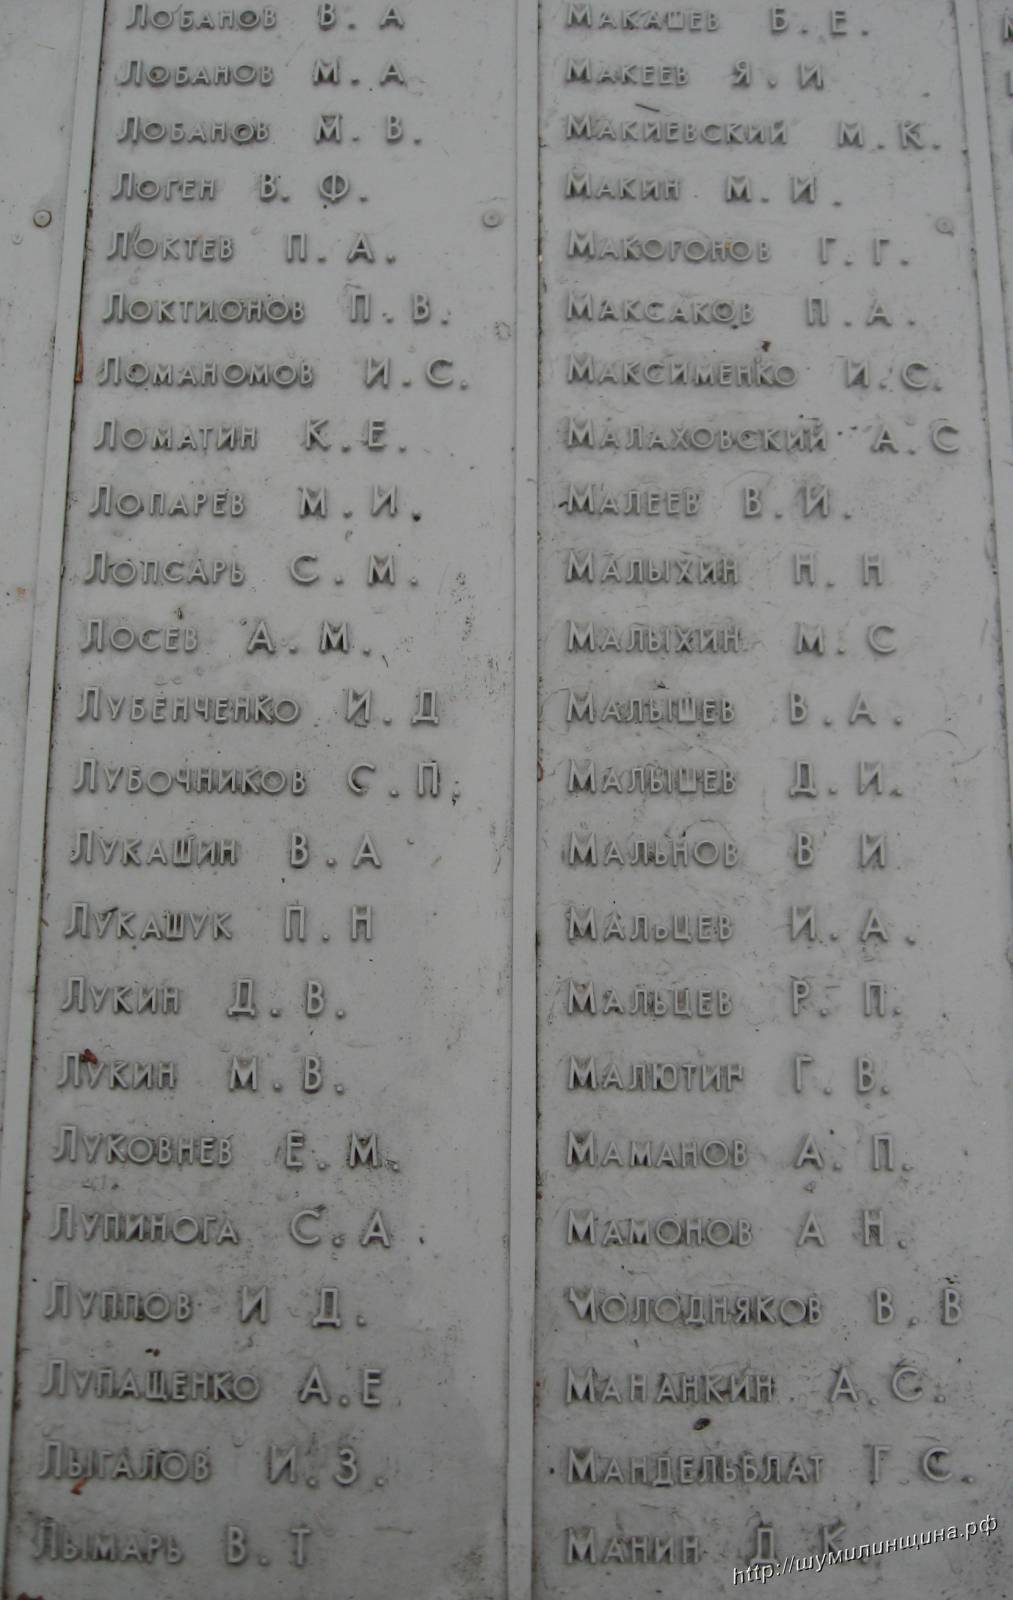 Лобанов В. А
Лобанов М. А
Лобанов М. В.
Логен В. Ф.
Локтев П. А.
Локтионов П. В.
Ломаномов И. С.
Ломатин К. Е.
Лопарев М. И.
Лопсарь С. М.
Лосев А. М.
Лубенченко И. Д
Лубочников С. П.
Лукашин В. А
Лукашук П. Н
Лукин Д. В.
Лукин М. В.
Луковнев Е. М.
Лупинога С. А
Луппов И Д.
Лупащенко А. Е
Лыгалов И. З.
Лымарь В. Т
Макашев Б. Е.
Макеев Я. И
Макиевский М. К.
Макин М. И.
Макогонов Г. Г.
Максаков П. А.
Максименко И. С.
Малаховский А. С
Малеев В. И.
Малыхин Н. Н
Малыхин М. С
Малышев В. А.
Малышев Д. И.
Мальнов В И
Мальцев И. А.
Мальцев Р. П.
Малютин Г. В.
Маманов А. П.
Мамонов А Н.
Молодняков В. В
Мананкин А. С.
Мандельблат Г С.
Манин Д К.
http://шумилинщина.рф